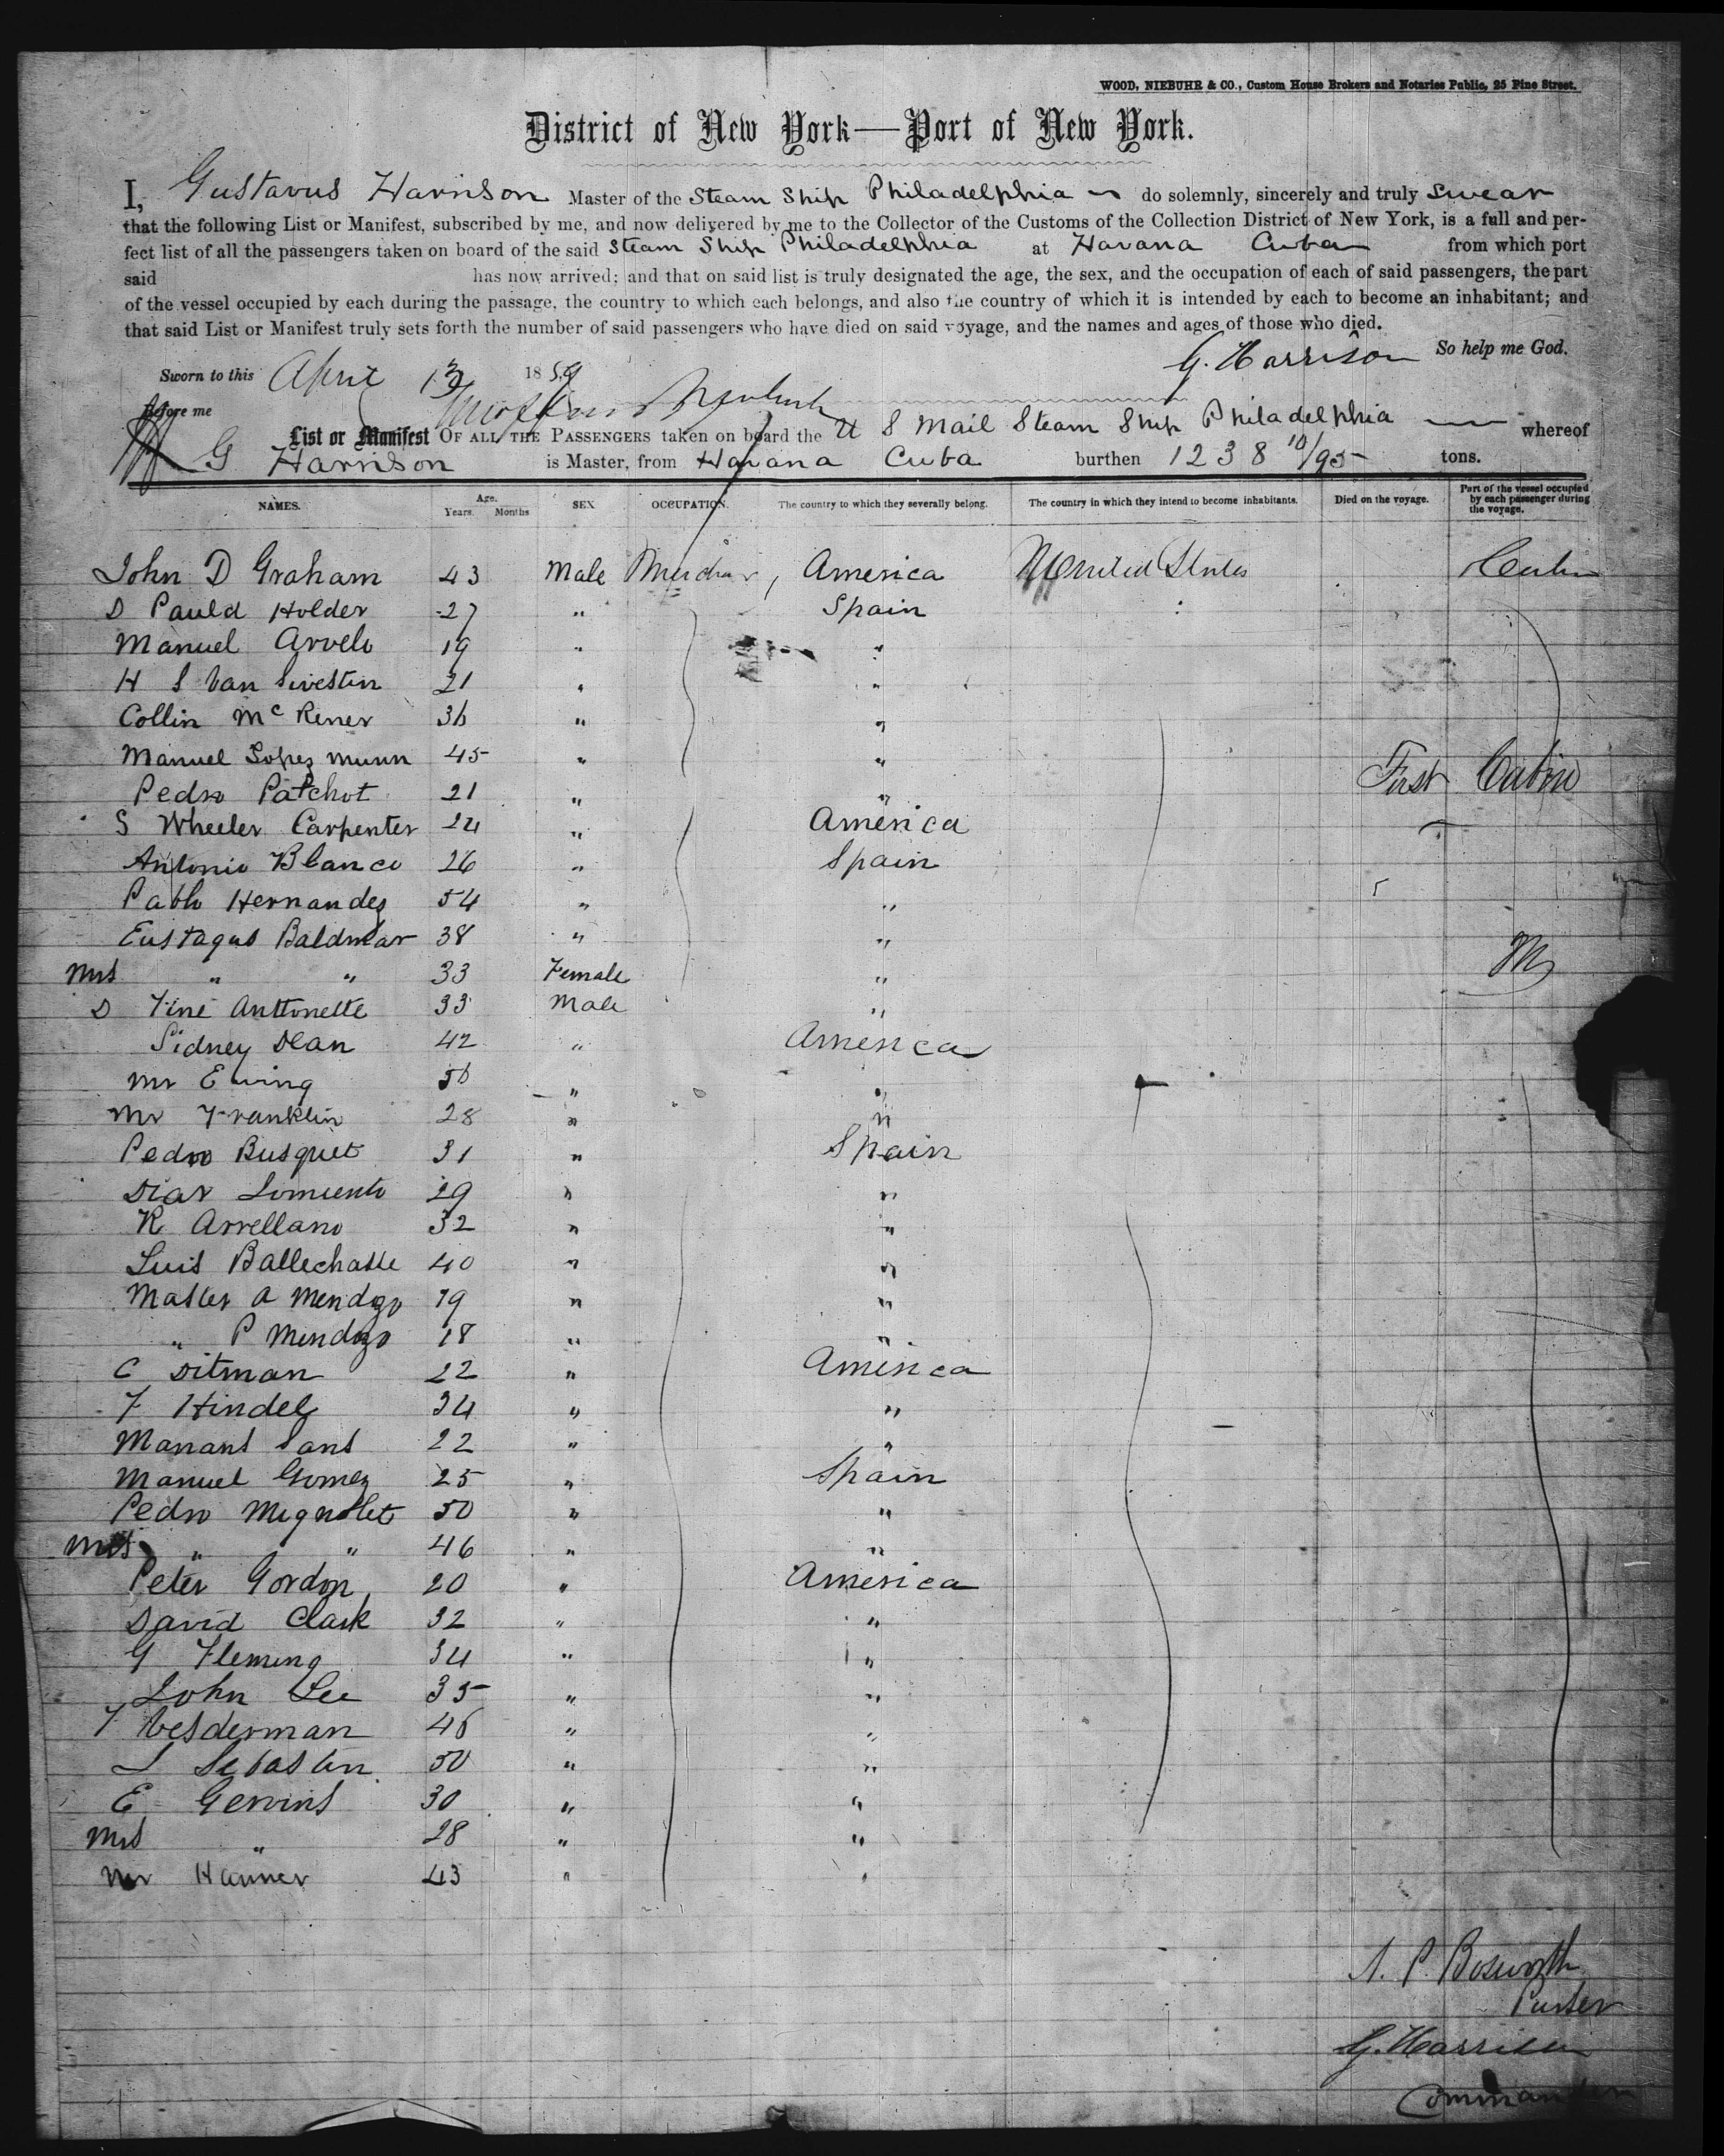 WOOD, NIEBUHR & CO., Custom House Brokers and Notaries Public, 25 Pine Street.
District of New York—Port of New York.
I, Gustavus Harrison Master of the Steam Ship Philadelphia do solemnly, sincerely and truly swear
that the following List or Manifest, subscribed by me, and now delivered by me to the Collector of the Customs of the Collection District of New York, is a full and per-
fect list of all the passengers taken on board of the said Steam Ship Philadelphia at Havana Cuba from which port
said has now arrived; and that on said list is truly designated the age, the sex, and the occupation of each of said passengers, the part
of the vessel occupied by each during the passage, the country to which each belongs, and also the country of which it is intended by each to become an inhabitant; and
that said List or Manifest truly sets forth the number of said passengers who have died on said voyage, and the names and ages of those who died.
G. Harrison So help me God.
Sworn to this April 13 1859
Before me
List or Manifest OF ALL THE PASSENGERS taken on board the U S Mail Steam Ship Philadelphia whereof
G Harrison is Master, from Havana Cuba burthen 1238 10/95 tons.
NAMES. Age. Years. Months SEX OCCUPATION. The country to which they severally belong. The country in which they intend to become inhabitants. Died on the voyage. Part of the vessel occupied by each passenger during the voyage.
John D Graham 43 Male America United States Cabin
D Pauld Holder 27 " Spain
Manuel Arvelo 19 " "
H S Van Sivestin 21 " "
Collin McRener 36 " "
Manuel Lopez Munn 45 " "
Pedro Patchot 21 " " First Cabin
S Wheeler Carpenter 24 " America
Antonio Blanco 26 " Spain
Pablo Hernandez 54 " "
Eustaqus Baldmar 38 " "
Mrs " " 33 Female "
D Fine Anttonette 33 Male "
Sidney Dean 42 " America
Mr Ewing 56 " "
Mr Franklin 28 " "
Pedro Busquet 31 " Spain
Diar Lomiento 29 " "
R Arrellano 32 " "
Luis Ballechasse 40 " "
Master A Mendozo 19 " "
" P Mendozo 18 " "
C Ditman 22 " America
F Hindel 34 " "
Manans Sans 22 " "
Manuel Gomez 25 " Spain
Pedro Mignolet 50 " "
Mrs " " 46 " "
Peter Gordon 20 " America
David Clark 32 " "
G Fleming 34 " "
John Lee 35 " "
F Vesderman 46 " "
S Sebastin 50 " "
E Gervins 30 " "
Mrs " 28 " "
Mr Hanner 43 " "
A. P. Bosworth
Purser
G. Harrison
Commander